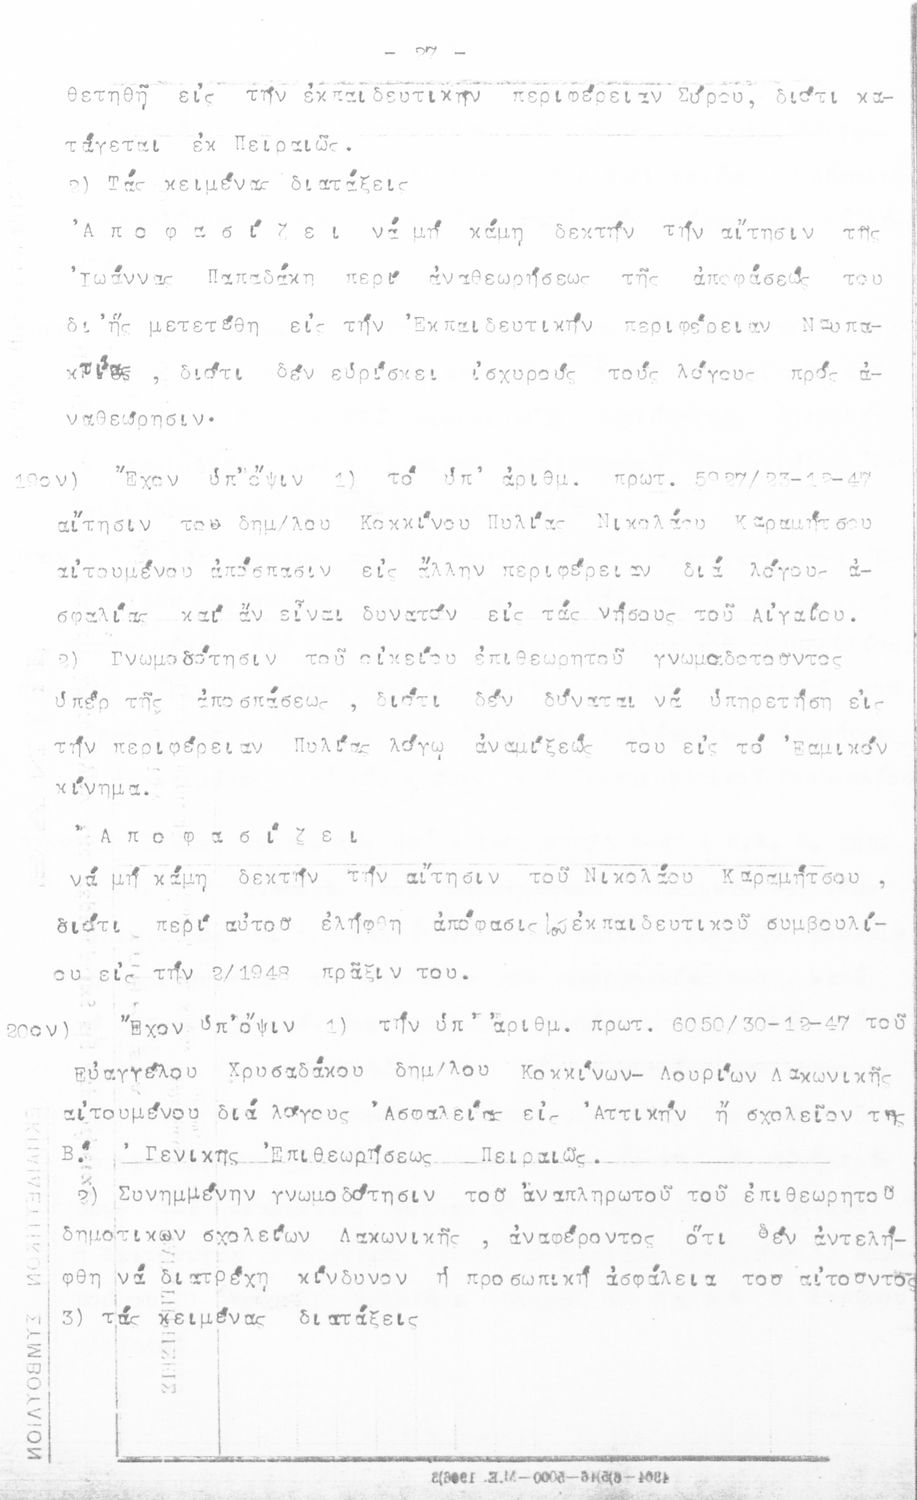 - 27 -
θετηθῆ εἰς τήν ἐκπαιδευτικήν περιφέρειαν Σύρου, διότι κα-
τάγεται ἐκ Πειραιῶς.
2) Τάς κειμένας διατάξεις
Ἀ π ο φ α σ ί ζ ε ι νά μή κάμη δεκτήν τήν αἴτησιν τῆς
Ἰωάννας Παπαδάκη περί ἀναθεωρήσεως τῆς ἀποφάσεώς του
δι'ἧς μετετέθη εἰς τήν Ἐκπαιδευτικήν περιφέρειαν Ναυπα-
κτίας , διότι δέν εὑρίσκει ἰσχυρούς τούς λόγους πρός ἀ-
ναθεώρησιν.
19ον) Ἔχον ὑπ'ὄψιν 1) τό ὑπ' ἀριθμ. πρωτ. 5927/23-12-47
αἴτησιν του δημ/λου Κοκκίνου Πυλίας Νικολάου Καραμήτσου
αἰτουμένου ἀπόσπασιν εἰς ἄλλην περιφέρειαν διά λόγους ἀ-
σφαλίας καί ἄν εἶναι δυνατόν εἰς τάς νήσους τοῦ Αἰγαίου.
2) Γνωμοδότησιν τοῦ οἰκείου ἐπιθεωρητοῦ γνωμοδοτοῦντος
ὑπέρ τῆς ἀποσπάσεως , διότι δέν δύναται νά ὑπηρετήση εἰς
τήν περιφέρειαν Πυλίας λόγῳ ἀναμίξεώς του εἰς τό Ἐαμικόν
κίνημα.
Ἀ π ο φ α σ ί ζ ε ι
νά μή κάμη δεκτήν τήν αἴτησιν τοῦ Νικολάου Καραμήτσου ,
διότι περί αὐτοῦ ἐλήφθη ἀπόφασις ἐκπαιδευτικοῦ συμβουλί-
ου εἰς τήν 2/1948 πρᾶξιν του.
20ον) Ἔχον ὑπ'ὄψιν 1) τήν ὑπ' ἀριθμ. πρωτ. 6050/30-12-47 τοῦ
Εὐαγγέλου Χρυσαδάκου δημ/λου Κοκκίνων- Λουρίων Λακωνικῆς
αἰτουμένου διά λόγους Ἀσφαλείας εἰς Ἀττικήν ἤ σχολεῖον της
Β.' Γενικῆς Ἐπιθεωρήσεως Πειραιῶς.
2) Συνημμένην γνωμοδότησιν τοῦ ἀναπληρωτοῦ τοῦ ἐπιθεωρητοῦ
δημοτικων σχολείων Λακωνικῆς , ἀναφέροντος ὅτι δέν ἀντελή-
φθη νά διατρέχη κίνδυνον ἡ προσωπική ἀσφάλεια του αἰτοῦντος
3) τάς κειμένας διατάξεις
ΕΚΠΑΙΔΕΥΤΙΚΟΝ ΣΥΜΒΟΥΛΙΟΝ